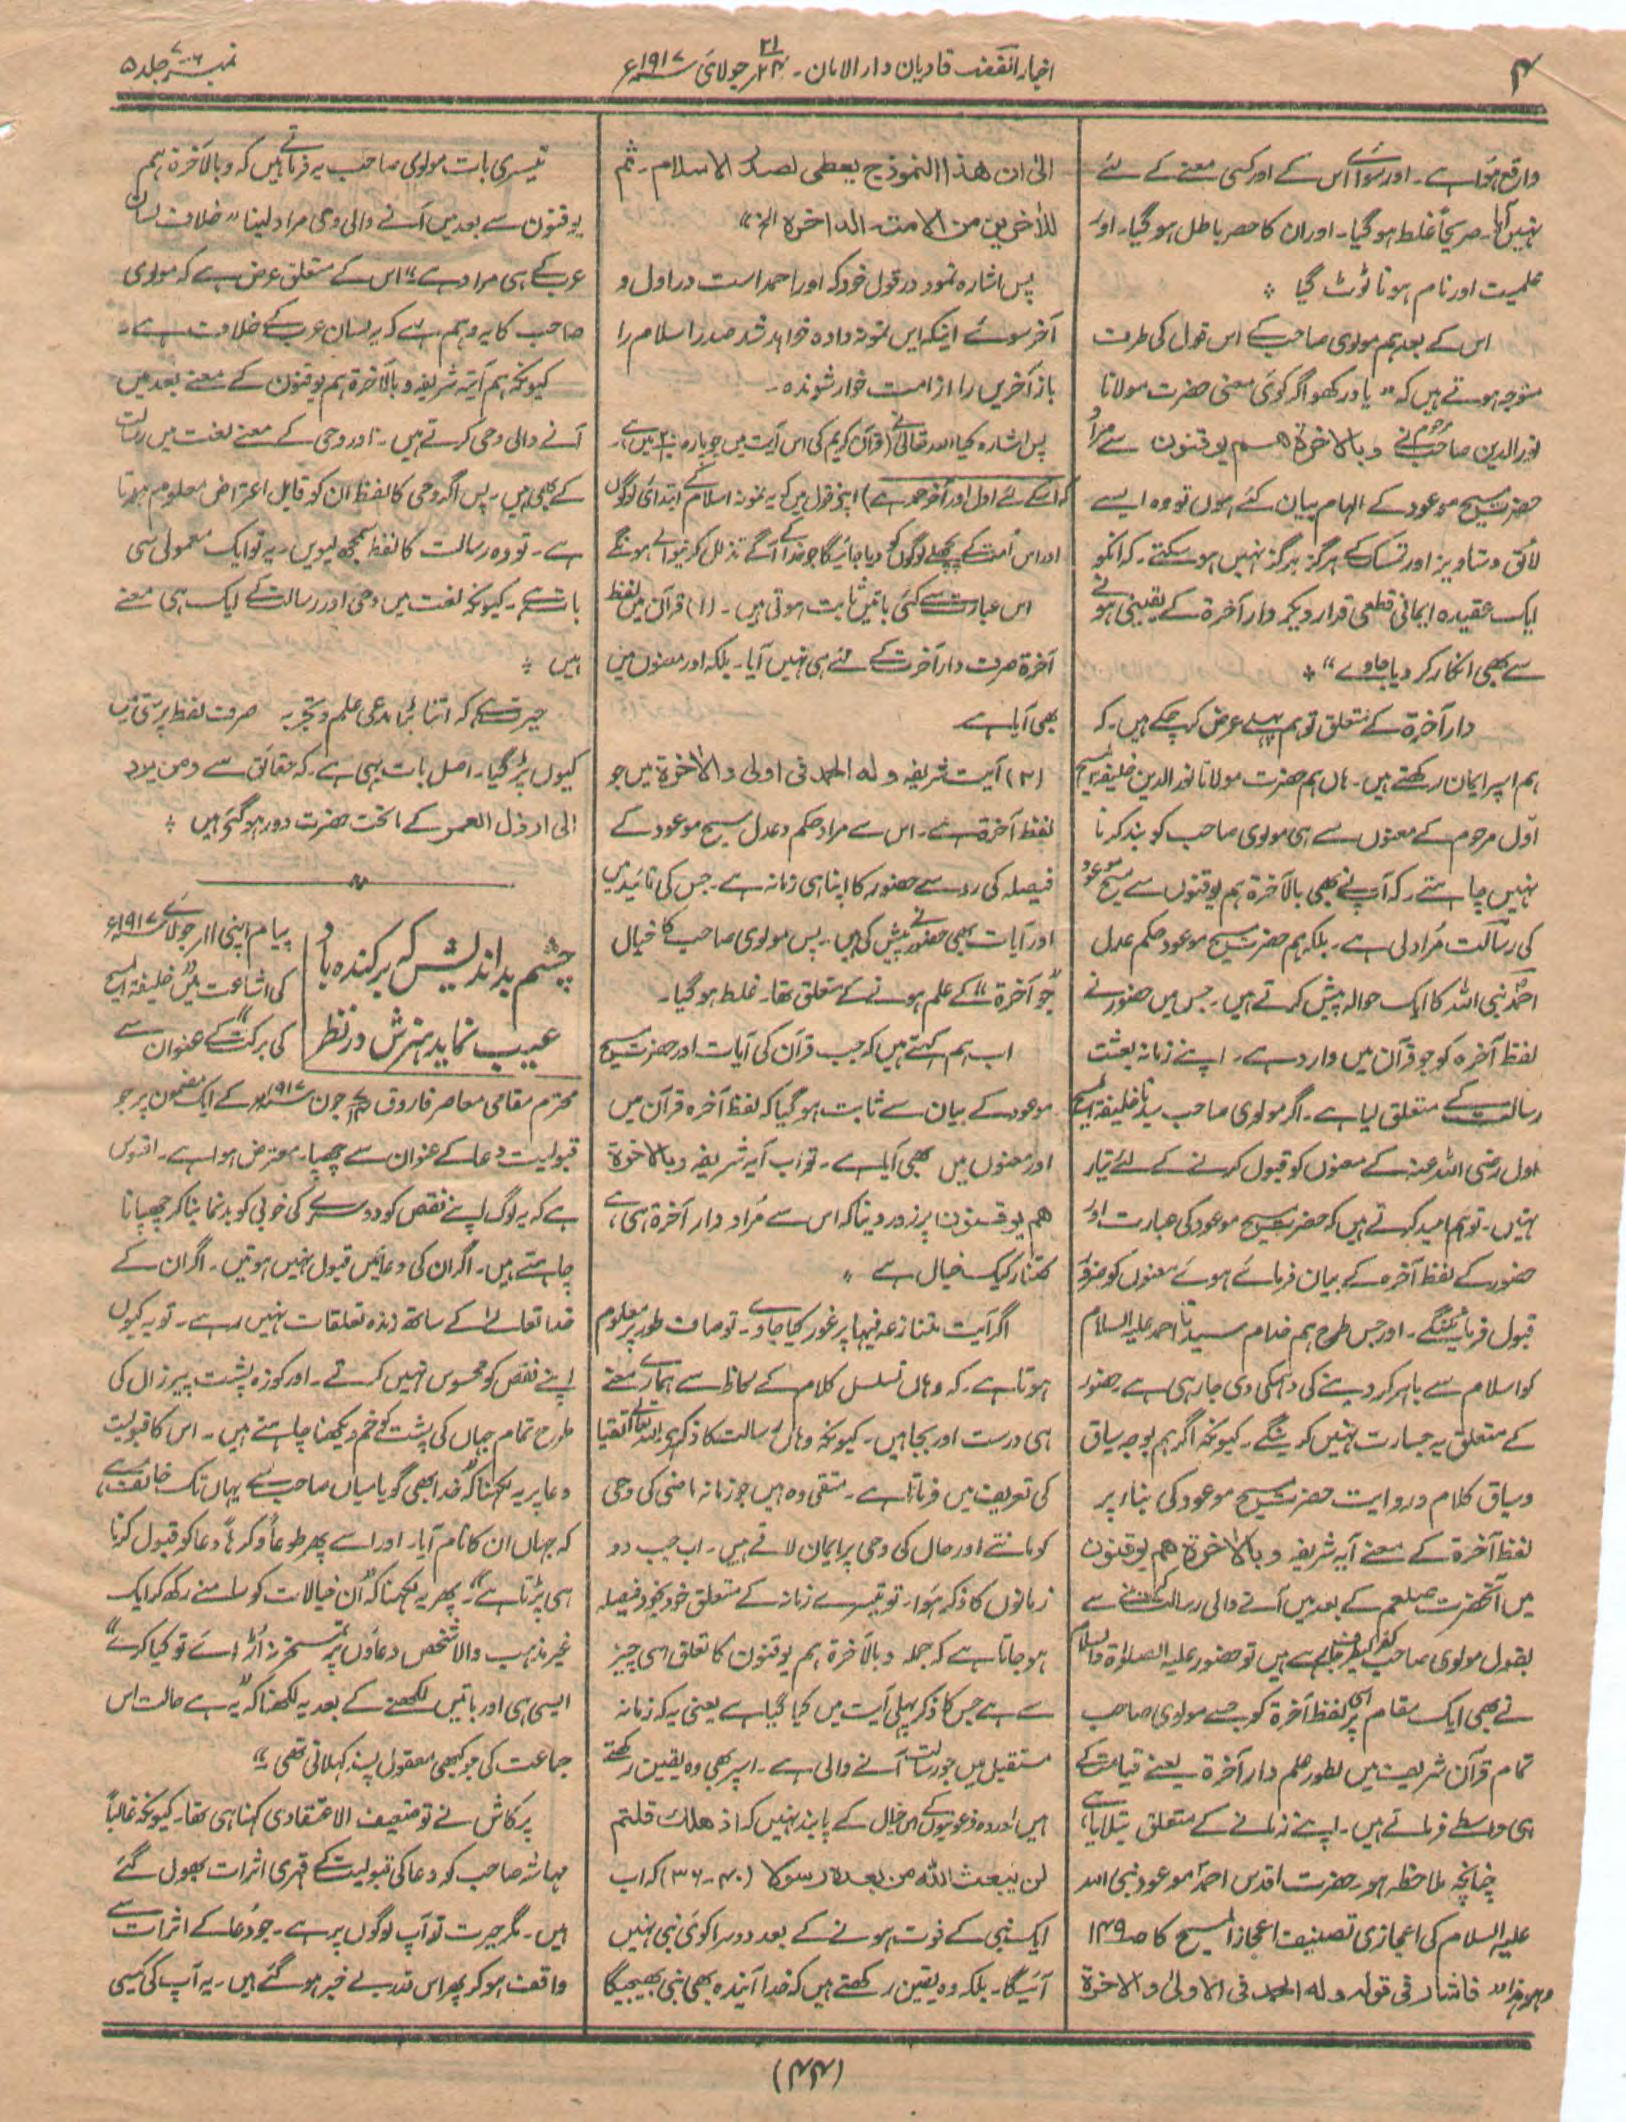 ۴
اخبار الفضل قادیان دارالامان - ۲۱/۲۴ جولائی ۱۹۱۷ء
نمبر ۶-۷ جلد ۵
واقع ہوا ہے۔ اور سوائے اس کے اور کسی معنے کے لئے
نہیں آیا۔ صریحاً غلط ہو گیا۔ اور ان کا حصر باطل ہو گیا۔ اور
علمیت اور نام ہونا ٹوٹ گیا ٭
اس کے بعد ہم مولوی صاحب کے اس قول کی طرف
متوجہ ہوتے ہیں کہ "یاد رکھو اگر کوئی معنی حضرت مولانا
نور الدین صاحب مرحوم نے وبالاخرۃ ھم یوقنون سے مراد
حضرت مسیح موعود کے الہام بیان کئے ہوں تو وہ ایسے
لائق دستاویز اور تمسک کے ہرگز ہرگز نہیں ہو سکتے۔ کہ انکو
ایک عقیدہ ایمانی قطعی قرار دیکر دار آخرۃ کے یقینی ہونے
سے بھی انکار کر دیا جاوے" ٭
دار آخرۃ کے متعلق تو ہم پہلے عرض کر چکے ہیں۔ کہ
ہم اسپر ایمان رکھتے ہیں۔ ہاں ہم حضرت مولانا نور الدین خلیفۃ المسیح
اوّل مرحوم کے معنوں سے ہی مولوی صاحب کو بند کرنا
نہیں چاہتے۔ کہ آپ نے بھی بالآخرۃ ہم یوقنوں سے مسیح موعود
کی رسالت مُراد لی ہے۔ بلکہ ہم حضرت مسیح موعود حکم عدل
احمدؑ نبی اللہ کا ایک حوالہ پیش کرتے ہیں۔ جس میں حضور نے
لفظ آخرہ کو جو قرآن میں وارد ہے۔ اپنے زمانہ بعثت
رسالت کے متعلق لیا ہے۔ اگر مولوی صاحب سیدنا خلیفۃ المسیح
اول رضی اللہ عنہ کے معنوں کو قبول کرنے کے لئے تیار
نہیں۔ تو ہم امید کرتے ہیں کہ حضرت مسیح موعود کی عبارت اور
حضور کے لفظ آخرہ کے بیان فرمائے ہوئے معنوں کو ضرور
قبول فرمائیں گے۔ اور جس طرح ہم خدام سیدنا احمد علیہ السلام
کو اسلام سے باہر کر دینے کی دہمکی دی جا رہی ہے۔ حضور
کے متعلق یہ جسارت نہیں کریں گے۔ کیونکہ اگر ہم بوجہ سیاق
و سباق کلام و روایت حضرت مسیح موعود کی بناء پر
لفظ آخرۃ کے معنے آیہ شریفہ وبالاخرۃ ھم یوقنون
میں آنحضرت صلعم کے بعد میں آنے والی رسالت کے کرنے سے
بقول مولوی صاحب ہیں تو حضور علیہ الصلوٰۃ والسلام
نے بھی ایک مقام پر اسی لفظ آخرۃ کو جسے مولوی صاحب
تمام قرآن شریف میں بطور علم دار آخرۃ یعنے قیامت کے
ہی واسطے فرماتے ہیں۔ اپنے زمانے کے متعلق بتلایا ہے
چنانچہ ملاحظہ ہو۔ حضرت اقدس احمدؑ موعود نبی اللہ
علیہ السلام کی اعجازی تصنیف اعجاز المسیح کا صہ ۱۴۹
وہوہذا "فاشار فی قولہ ولہ الحمد فی الاولیٰ والاخرۃ
الیٰ ان ھذا النموذج یعطی لصدر الاسلام۔ ثم
للاٰخرین من الامت الداخرۃ الخ"
پس اشارہ نمود در قول خود کہ اورا حمد است در اول و
آخر سوئے اینکہ ایں نمونہ دادہ خواہد شد صدر اسلام را
باز آخریں را از امت خوار شوندہ۔
پس اشارہ کیا اللہ تعالیٰ نے (قرآن کریم کی اس آیت میں جو پارہ ۲۰ میں ہے۔
کہ اسکے لئے اول اور آخر حمد ہے) اپنے قول میں کہ یہ نمونہ اسلام کے ابتدائی لوگوں
اور اس اُمت کے پچھلے لوگوں کو دیا جائیگا جو خدا کے آگے تذلل کرنیوالے ہونگے
اس عبارت سے کئی باتیں ثابت ہوتی ہیں۔ (۱) قرآن میں لفظ
آخرۃ صرف دار آخرت کے لئے ہی نہیں آیا۔ بلکہ اور معنوں میں
بھی آیا ہے
(۲) آیت شریفہ ولہ الحمد فی اولیٰ والاخرۃ میں جو
لفظ آخرۃ ہے۔ اس سے مراد حکم و عدل مسیح موعود کے
فیصلہ کی رو سے حضور کا اپنا ہی زمانہ ہے۔ جس کی تائید میں
اور آیات بھی حضور نے پیش کی ہیں۔ پس مولوی صاحب کا خیال
جو "آخرۃ" کے علم ہونے کے متعلق تھا۔ غلط ہو گیا۔
اب ہم کہتے ہیں کہ جب قرآن کی آیات اور حضرت مسیح
موعود کے بیان سے ثابت ہو گیا کہ لفظ آخرہ قرآن میں
اور معنوں میں بھی آیا ہے۔ تو اب آیہ شریفہ وبالاخرۃ
ھم یوقنون پر زور دینا کہ اس سے مُراد دار آخرۃ ہی ہے
کتنا رکیک خیال ہے ٭
اگر آیت متنازعہ فیہا پر غور کیا جاوے۔ تو صاف طور پر معلوم
ہوتا ہے۔ کہ وہاں تسلسل کلام کے لحاظ سے ہمارے معنے
ہی درست اور بجا ہیں۔ کیونکہ وہاں رسالت کا ذکر ہے اللہ تعالےٰ اتقیا
کی تعریف میں فرماتا ہے۔ متقی وہ ہیں جو زمانہ ماضی کی وحی
کو مانتے اور حال کی وحی پر ایمان لاتے ہیں۔ اب جب دو
زمانوں کا ذکر ہوا۔ تو تیسرے زمانہ کے متعلق خود بخود فیصلہ
ہو جاتا ہے کہ جملہ وبالآخرۃ ہم یوقنون کا تعلق اسی چیز
سے ہے جس کا ذکر پہلی آیت میں کیا گیا ہے یعنی یہ کہ زمانہ
مستقبل میں جو رسالت آنے والی ہے۔ اسپر بھی وہ یقین رکھتے
ہیں اور وہ فرعونیوں کے اس خیال کے پابند نہیں کہ اذ ھلک قلتم
لن یبعث اللہ من بعدہ رسولا (۴۰-۳۶) کہ اب
ایک نبی کے فوت ہونے کے بعد دوسرا کوئی نبی نہیں
آئیگا۔ بلکہ وہ یقین رکھتے ہیں کہ خدا آیندہ بھی نبی بھیجیگا
تیسری بات مولوی صاحب یہ فرماتے ہیں کہ وبالآخرۃ ہم
یوقنون سے بعد میں آنے والی وحی مراد لینا "خلاف لسان
عرب کے ہی مراد ہے" اس کے متعلق عرض ہے کہ مولوی
صاحب کا یہ وہم ہے کہ یہ لسان عرب کے خلاف ہے۔
کیونکہ ہم آیۃ شریفہ وبالآخرۃ ہم یوقنون کے معنے بعد میں
آنے والی وحی کرتے ہیں۔ اور وحی کے معنے لغت میں رسالت
کے بھی ہیں۔ پس اگر وحی کا لفظ ان کو قابل اعتراض معلوم ہوتا
ہے۔ تو وہ رسالت کا لفظ سمجھ لیویں۔ یہ تو ایک معمولی سی
بات ہے۔ کیونکہ لغت میں وحی اور رسالت کے ایک ہی معنے
ہیں ٭
حیرت ہے کہ اتنا بڑا مدعی علم و تجربہ صرف لفظ پرستی میں
کیوں پڑ گیا۔ اصل بات یہی ہے۔ کہ حقائق سے ومن یرد
الی ارذل العمر کے ماتحت حضرت دور ہو گئے ہیں ٭
چشم بد اندیش کہ برکندہ باد
عیب نماید ہنرش در نظر
پیام اپنی ۱۱؍ جولائی ۱۹۱۷ء
کی اشاعت میں "خلیفۃ المسیح
کی برکت" کے عنوان سے
محترم مقامی معاصر فاروق جون ۱۹۱۷ء کے ایک مضمون پر جو
قبولیت دعا کے عنوان سے چھپا۔ معترض ہوا ہے۔ افسوس
ہے کہ یہ لوگ اپنے نقص کو دوسرے کی خوبی کو بدنما بنا کر چھپانا
چاہتے ہیں۔ اگر ان کی دعائیں قبول نہیں ہوتیں۔ اگر ان کے
خدا تعالےٰ کے ساتھ زندہ تعلقات نہیں رہے۔ تو یہ کیوں
اپنے نقص کو محسوس نہیں کرتے۔ اور کوزہ پشت پیر زال کی
طرح تمام جہاں کی پشت کو خم دیکھنا چاہتے ہیں۔ اس کا قبولیت
دعا پر یہ لکھنا کہ "خدا بھی گویا میاں صاحب سے یہاں تک خائف ہے
کہ جہاں ان کا نام آیا۔ اور اسے پھر طوعاً و کرہاً دعا کو قبول کرنا
ہی پڑتا ہے"۔ پھر یہ لکھنا کہ "ان خیالات کو سامنے رکھ کر ایک
غیر مذہب والا شخص دعاؤں پر تمسخر نہ اُڑائے تو کیا کرے"
ایسی ہی اور باتیں لکھنے کے بعد یہ لکھنا کہ "یہ ہے حالت اس
جماعت کی جو کبھی معقول پسند کہلاتی تھی"
پرکاش نے تو ضعیف الاعتقادی کہنا ہی تھا۔ کیونکہ غالباً
مہاشہ صاحب کو دعا کی قبولیت کے قہری اثرات بھول گئے
ہیں۔ مگر حیرت تو آپ لوگوں پر ہے۔ جو دُعا کے اثرات سے
واقف ہو کر پھر اس قدر بے خبر ہو گئے ہیں۔ یہ آپ کی کیسی
(۴۴)